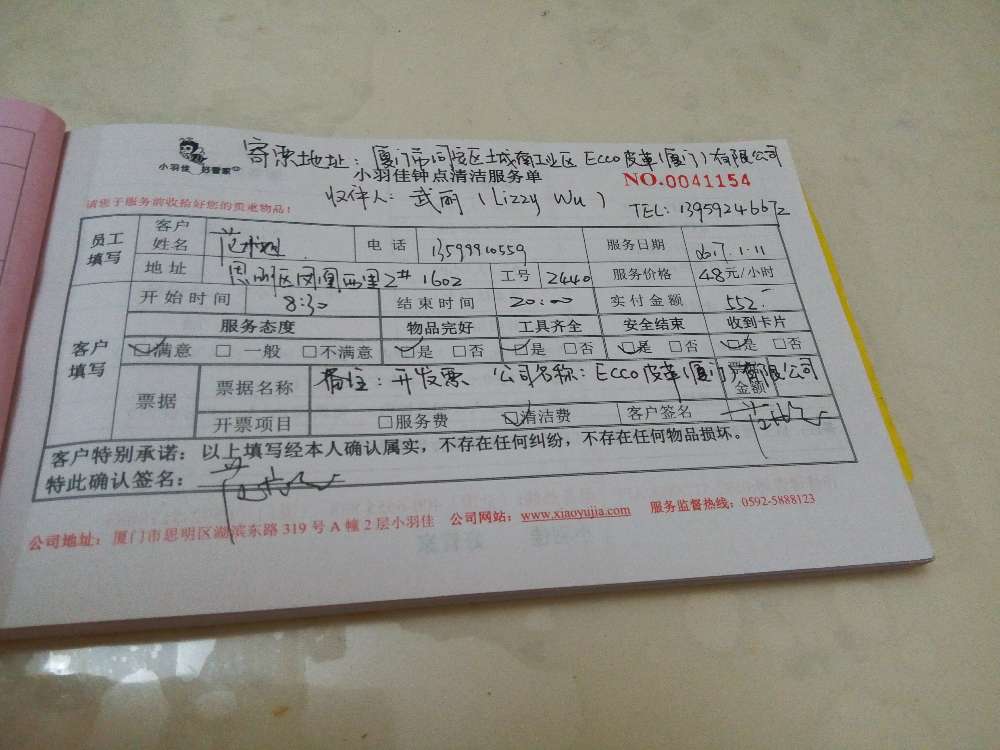 寄票地址：厦门市同安区土城南工业区 Ecco皮革(厦门)有限公司
小羽佳 好管家
小羽佳钟点清洁服务单
NO.0041154
收件人：武丽（Lizzy Wu）
TEL: 13959246672
请您于服务前收拾好您的贵重物品！
员工填写 客户姓名 电话 13599910559 服务日期 2017.1.11
地址 思明区凤凰西里2# 1602 工号 2440 服务价格 48元/小时
客户填写 开始时间 8:30 结束时间 20:00 实付金额 552.
服务态度 物品完好 工具齐全 安全结束 收到卡片
☑满意 □一般 □不满意 ☑是 □否 ☑是 □否 ☑是 □否 ☑是 □否
票据 票据名称 备注：开发票 公司名称：Ecco皮革(厦门)有限公司 票据金额
开票项目 □服务费 ☑清洁费 客户签名
客户特别承诺：以上填写经本人确认属实，不存在任何纠纷，不存在任何物品损坏。
特此确认签名：
公司地址：厦门市思明区湖滨东路319号A幢2层小羽佳 公司网站：www.xiaoyujia.com 服务监督热线：0592-5888123